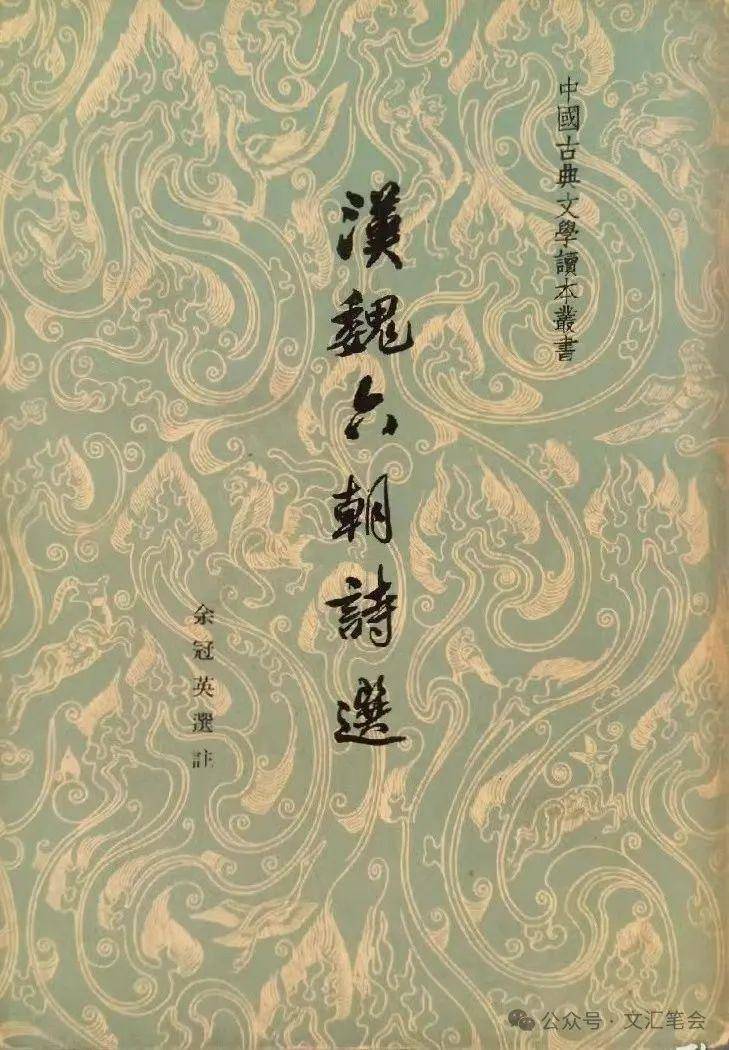 中國古典文學讀本叢書
漢魏六朝詩選
余冠英選註
公众号·文汇笔会